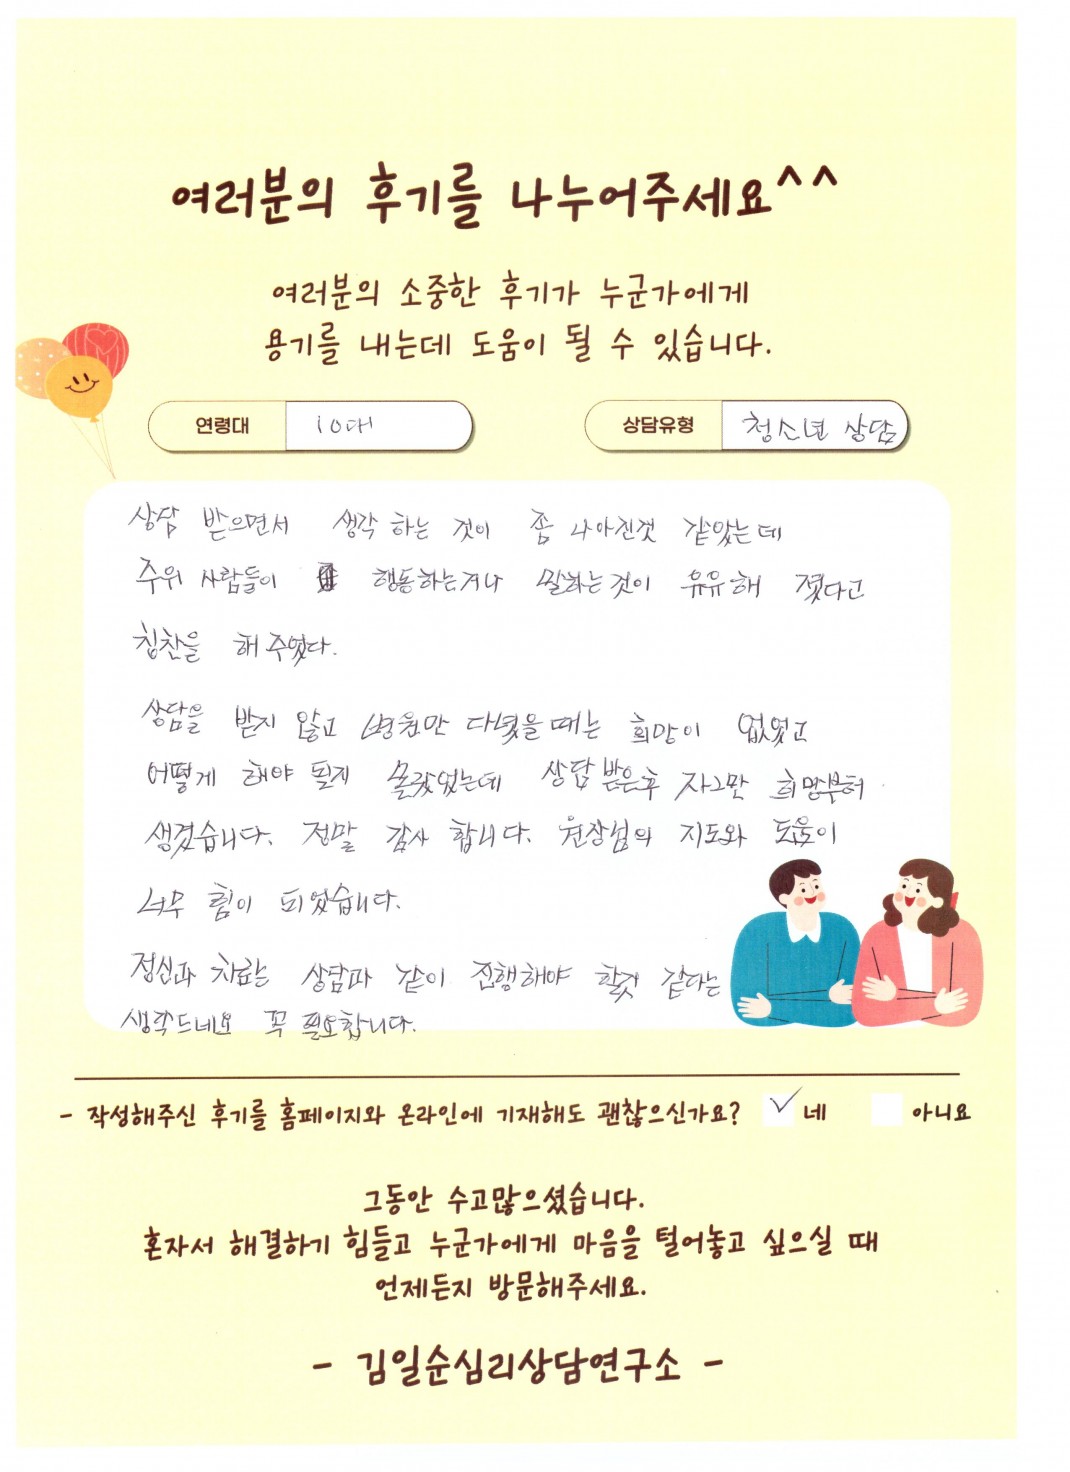 여러분의 후기를 나누어주세요^^
여러분의 소중한 후기가 누군가에게
용기를 내는데 도움이 될 수 있습니다.
연령대 10대
상담유형 청소년 상담
상담 받으면서 생각 하는 것이 좀 나아진것 같았는데
주위 사람들이 행동하는거나 말하는것이 유유해 졌다고
칭찬을 해 주었다.
상담을 받지 않고 병원만 다녔을때는 희망이 없었고
어떻게 해야 될지 몰랐었는데 상담 받은후 자그만 희망부터
생겼습니다. 정말 감사 합니다. 원장님의 지도와 도움이
너무 힘이 되었습니다.
정신과 치료는 상담과 같이 진행해야 할것 같다는
생각드네요 꼭 필요합니다.
- 작성해주신 후기를 홈페이지와 온라인에 기재해도 괜찮으신가요? ✓ 네 아니요
그동안 수고많으셨습니다.
혼자서 해결하기 힘들고 누군가에게 마음을 털어놓고 싶으실 때
언제든지 방문해주세요.
- 김일순심리상담연구소 -